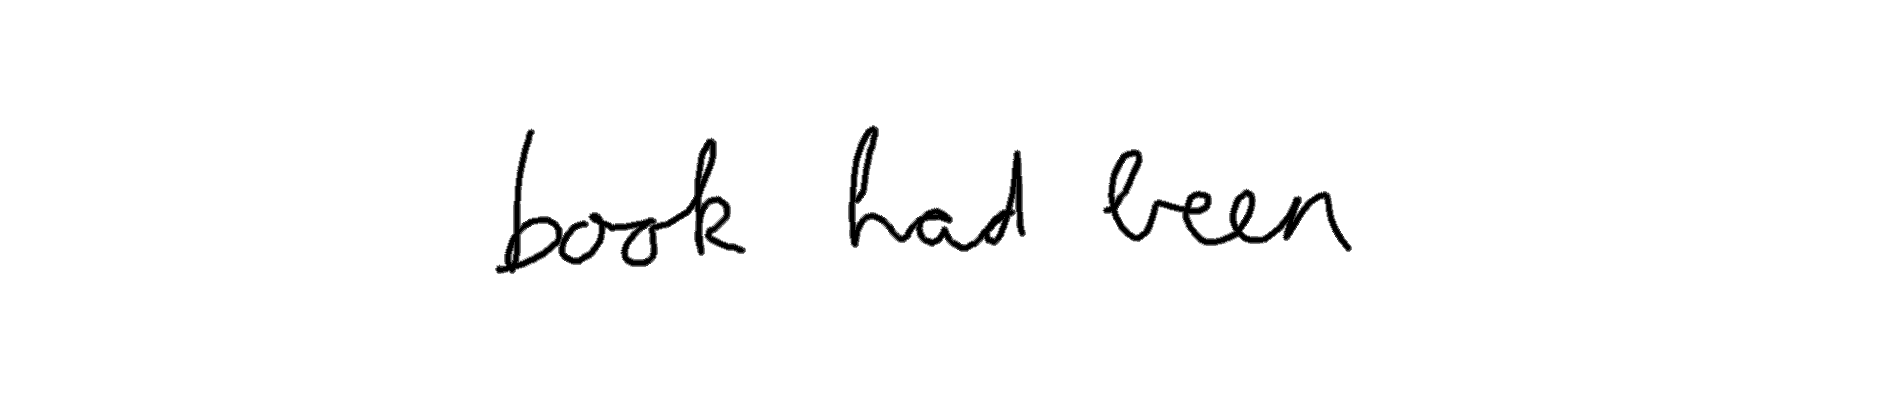 book had been